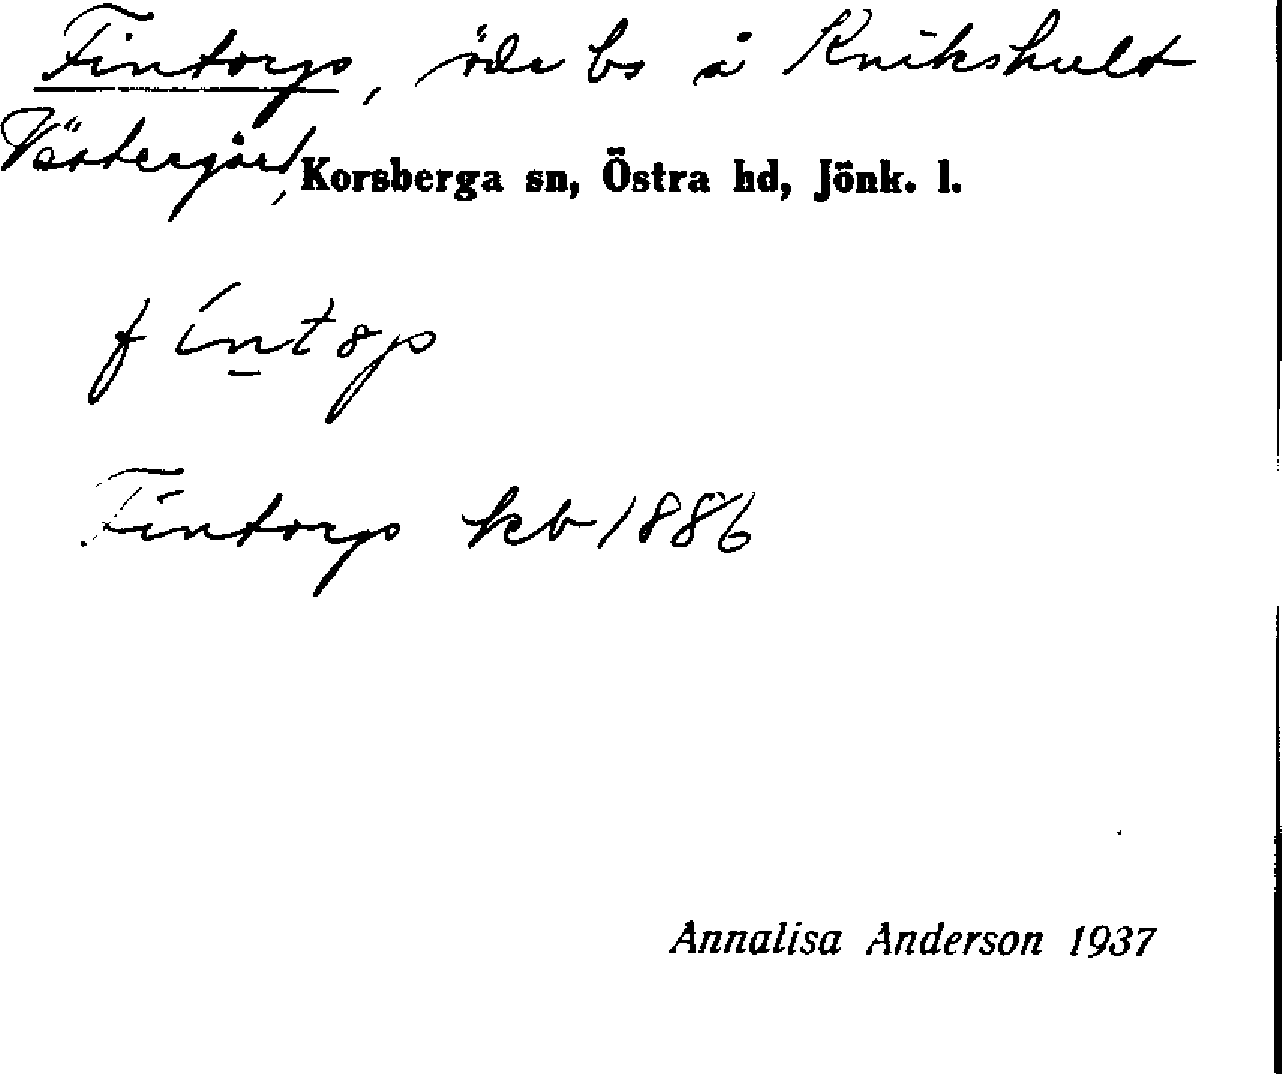 Fintorp, öde bs å Knikshult
Västergård, Korsberga sn, Östra hd, Jönk. l.
fintep
Fintorp kb 1886
Annalisa Anderson 1937